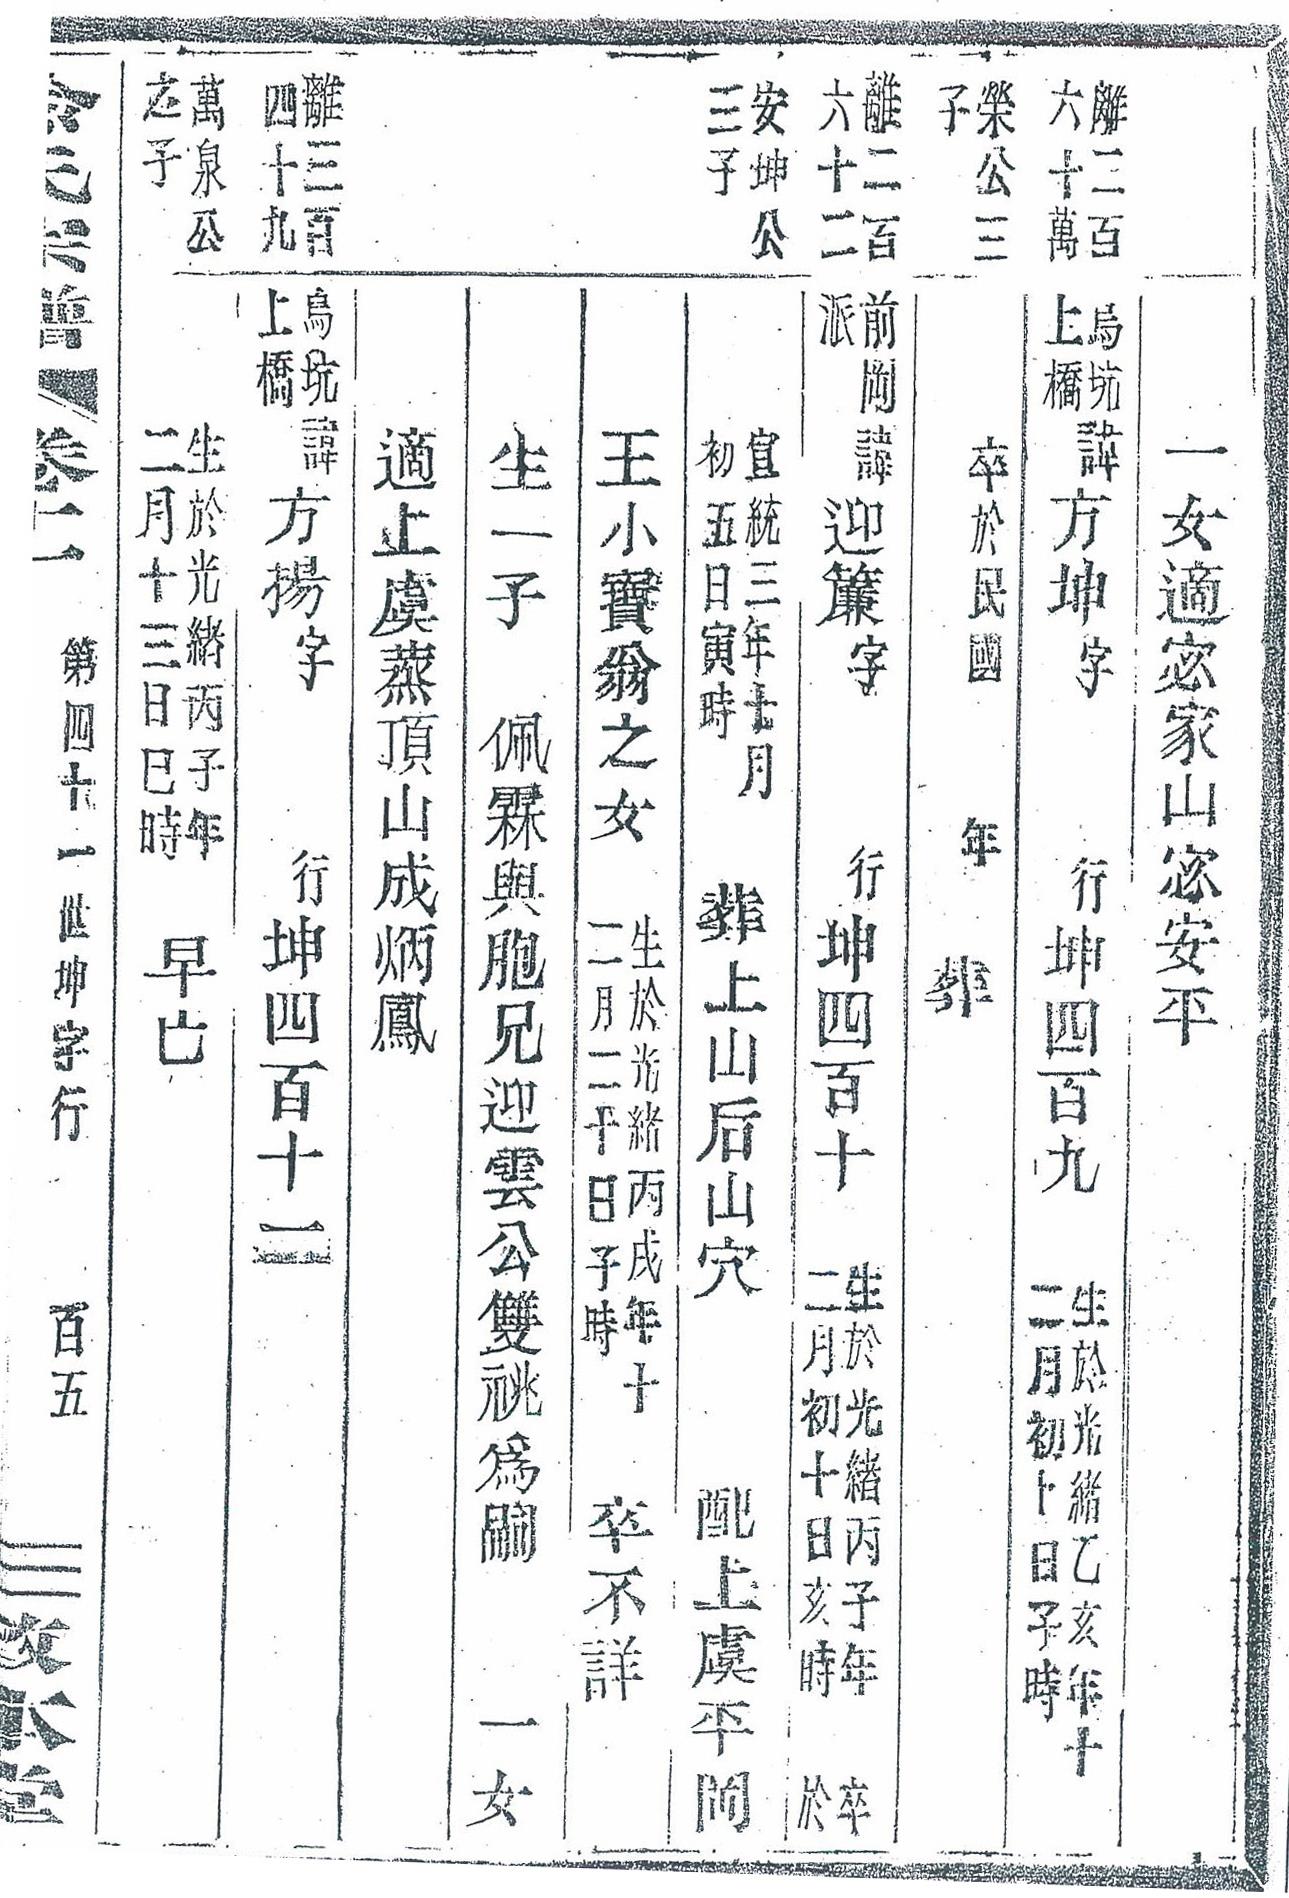 一女適宓家山宓安平
離二百
六十萬
榮公三
子
烏坑
上橋
諱方坤字
行坤四百九
生於光緒乙亥年十
二月初十日子時
卒於民國
年
葬
離二百
六十二
安坤公
三子
前岡
派
諱迎簾字
行坤四百十
生於光緒丙子年
二月初十日亥時
卒
於
宣統三年七月
初五日寅時
葬上山后山穴
配上虞平岡
王小寶翁之女
生於光緒丙戌年十
二月二十日子時
卒不詳
生一子
佩霖與胞兄迎雲公雙祧爲嗣
一女
適上虞蒸頂山成炳鳳
離三百
四十九
萬泉公
之子
烏坑
上橋
諱方揚字
行坤四百十一
生於光緒丙子年
二月十三日巳時
早亡
氏宗譜
卷十一
第四十一世坤字行
百五
敦本堂